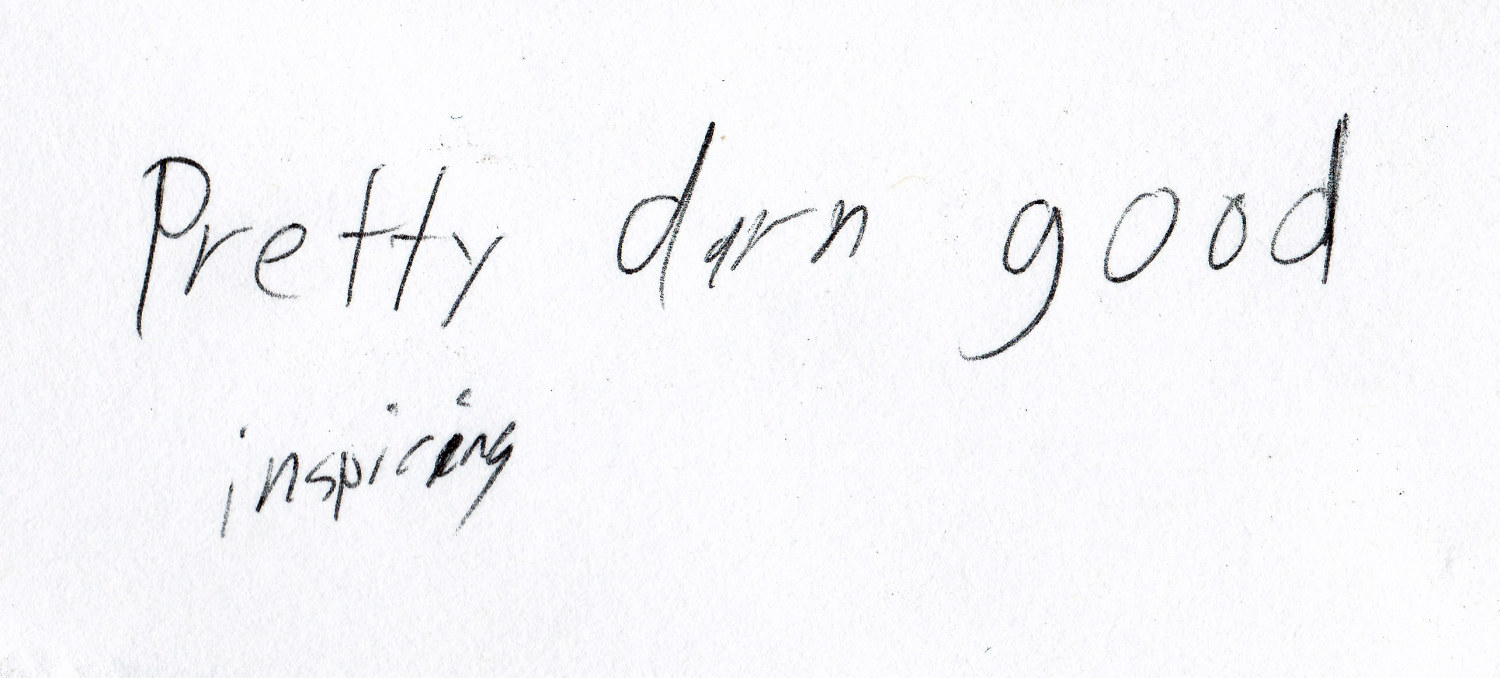 Pretty darn good
inspiring